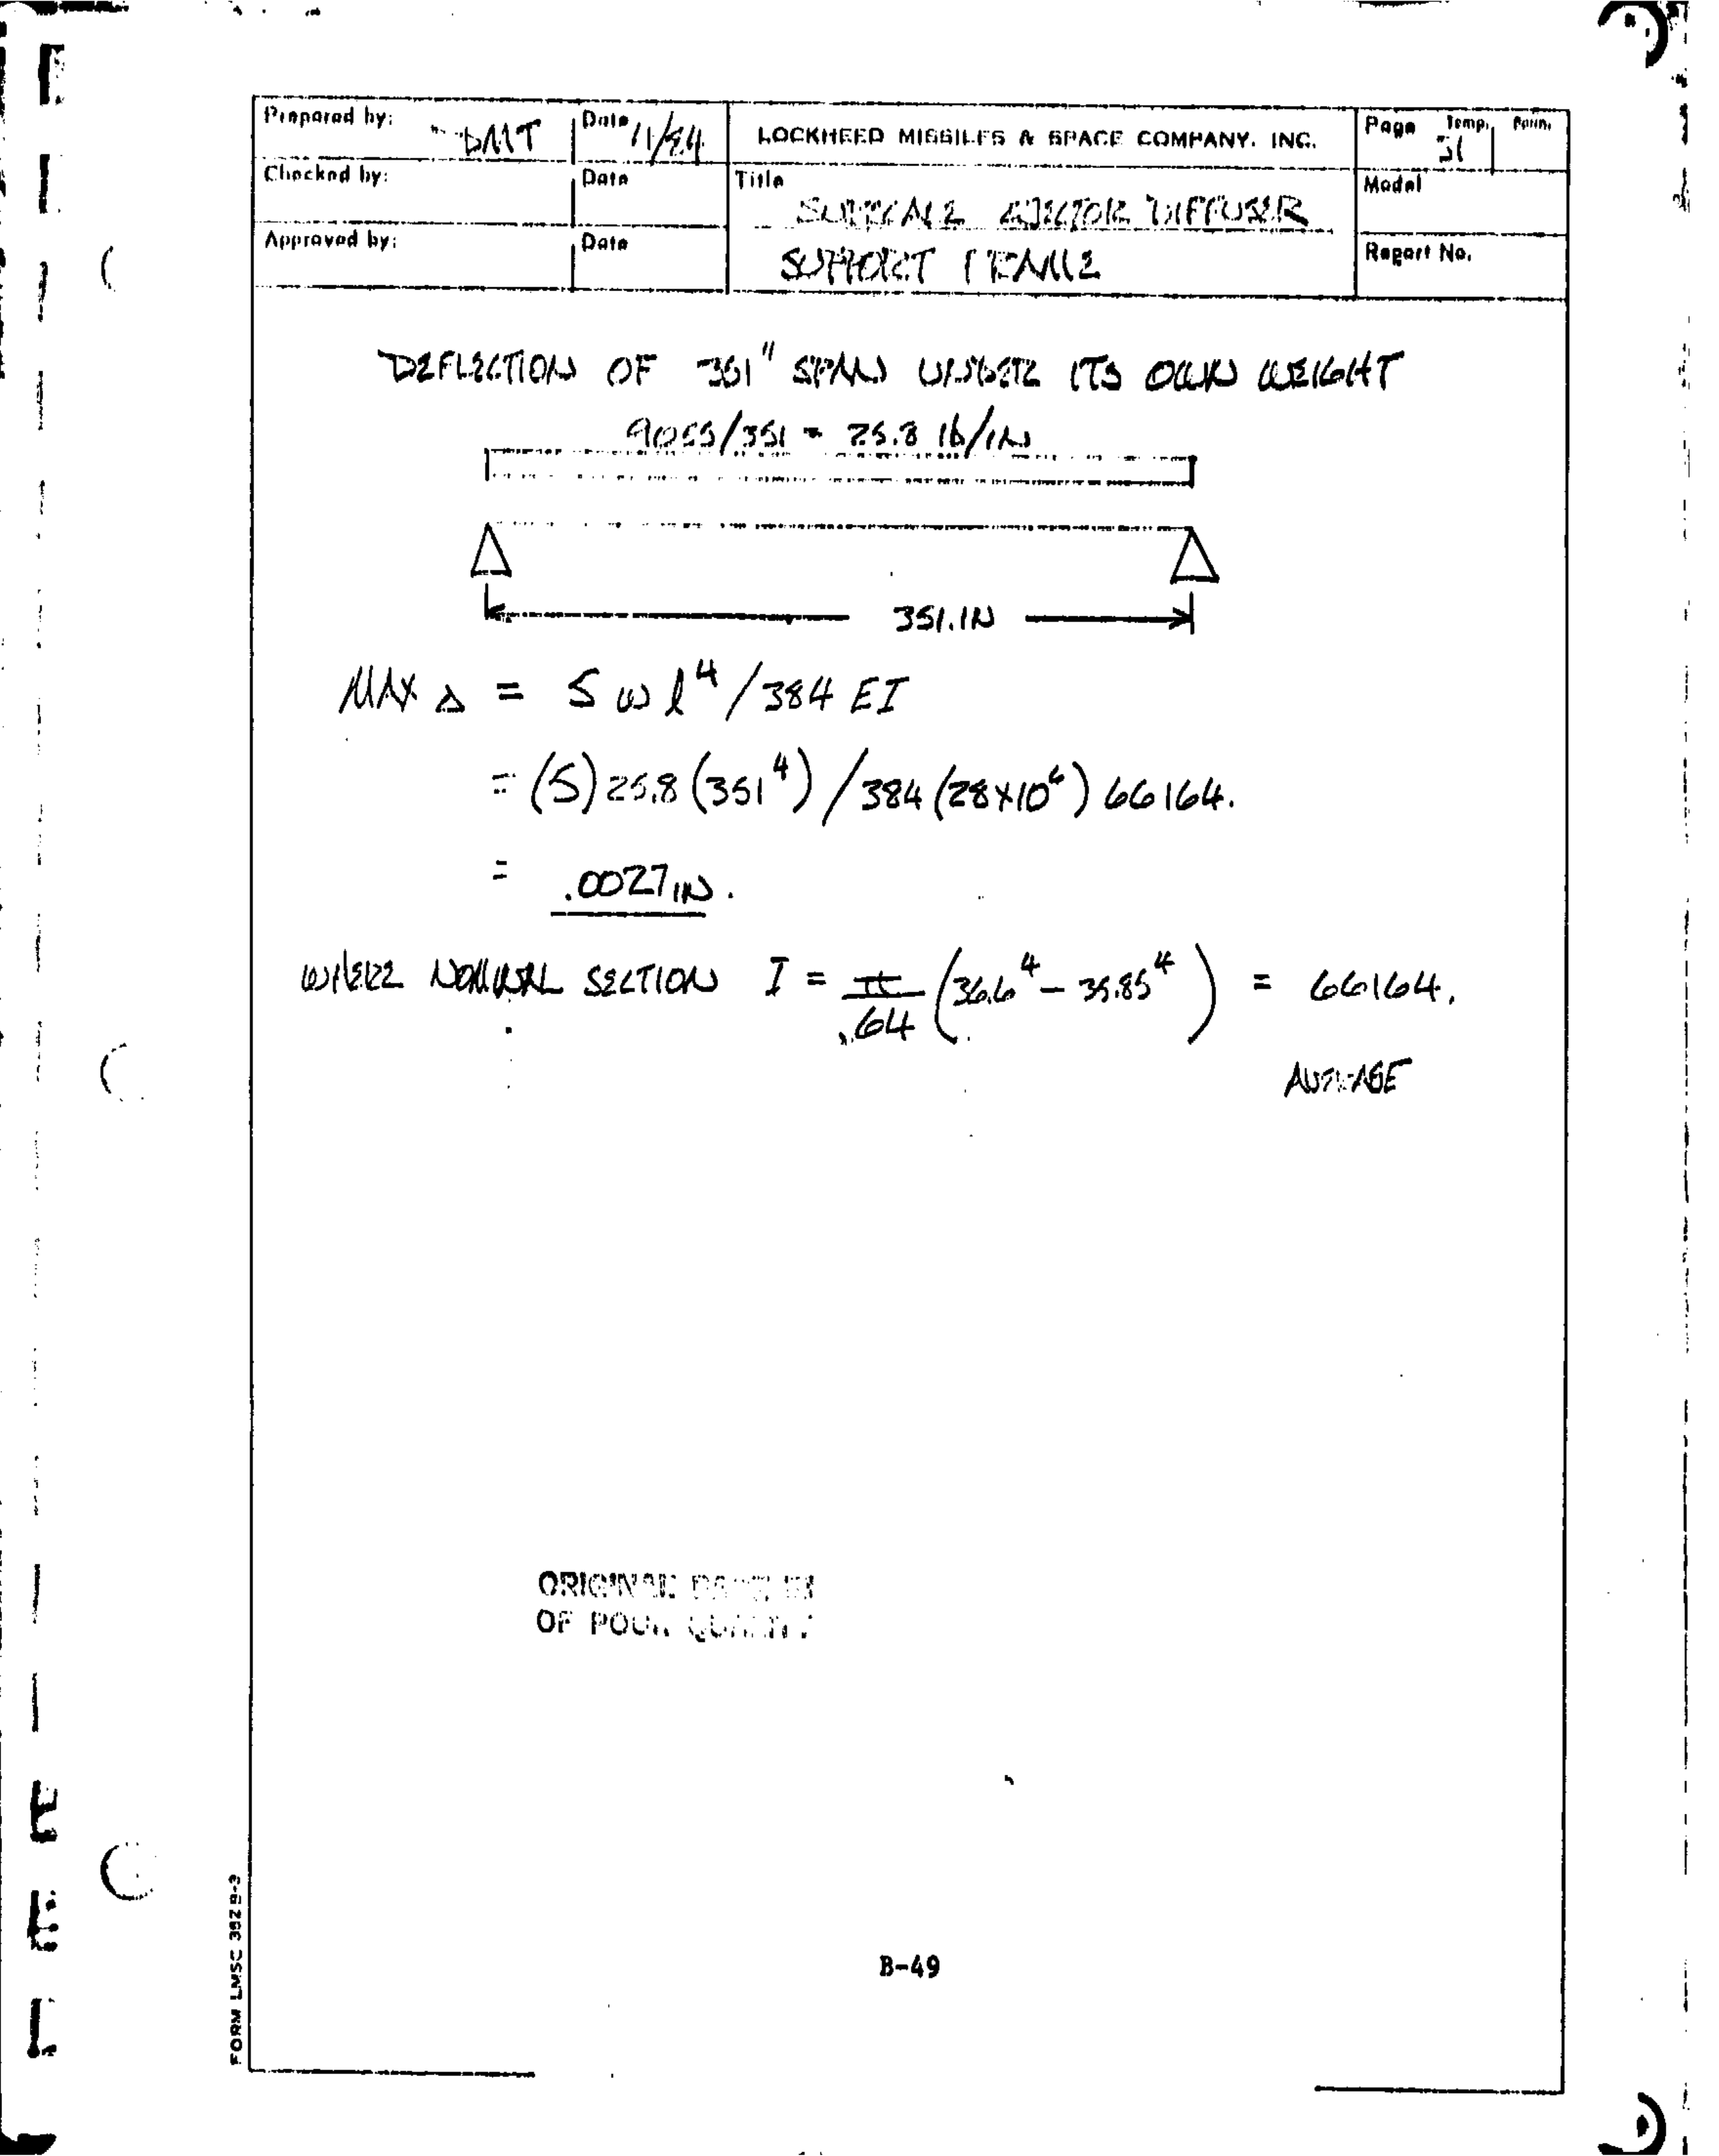 Prepared by: DMT Date 11/84 LOCKHEED MISSILES & SPACE COMPANY, INC. Page Temp. Perm.
Checked by: Date Title Model
SUBSCALE EJECTOR DIFFUSER
Approved by: Date SUPPORT FRAME Report No.
DEFLECTION OF 351" SPAN UNDER ITS OWN WEIGHT
9055/351 = 25.8 lb/IN
351. IN
MAX Δ = 5 ω l⁴ / 384 EI
= (5) 25.8 (351⁴) / 384 (28×10⁶) 66164.
= .0027 IN.
WHERE NOMINAL SECTION I = π/64 (36.6⁴ - 35.85⁴) = 66164.
AVERAGE
ORIGINAL PAGE IS
OF POOR QUALITY
B-49
FORM LMSC 382 B-3